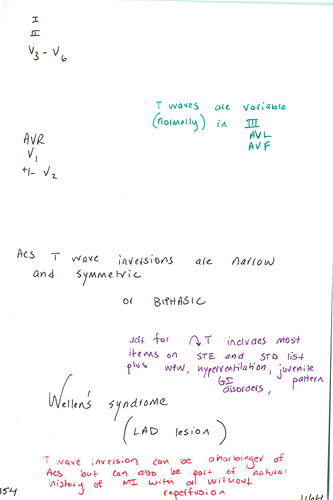 I
II
V3 - V6
T waves are variable
(normally) in III
AVL
AVF
AVR
V1
+/- V2
ACS T wave inversions are narrow
and symmetric
or BIPHASIC
dds for T includes most
items on STE and STD list
plus WPW, hyperventilation, juvenile
GI pattern
disorders,
Wellen's syndrome
(LAD lesion)
T wave inversion can be a harbinger of
ACS but can also be part of natural
history of MI with or without
reperfusion
354